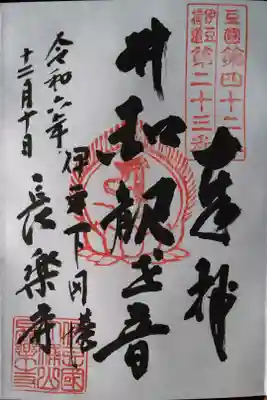 豆國第四十二
伊豆横道第二十三番
奉拝
平和観世音
伊豆下田港
長楽寺
令和六年
十二月十日